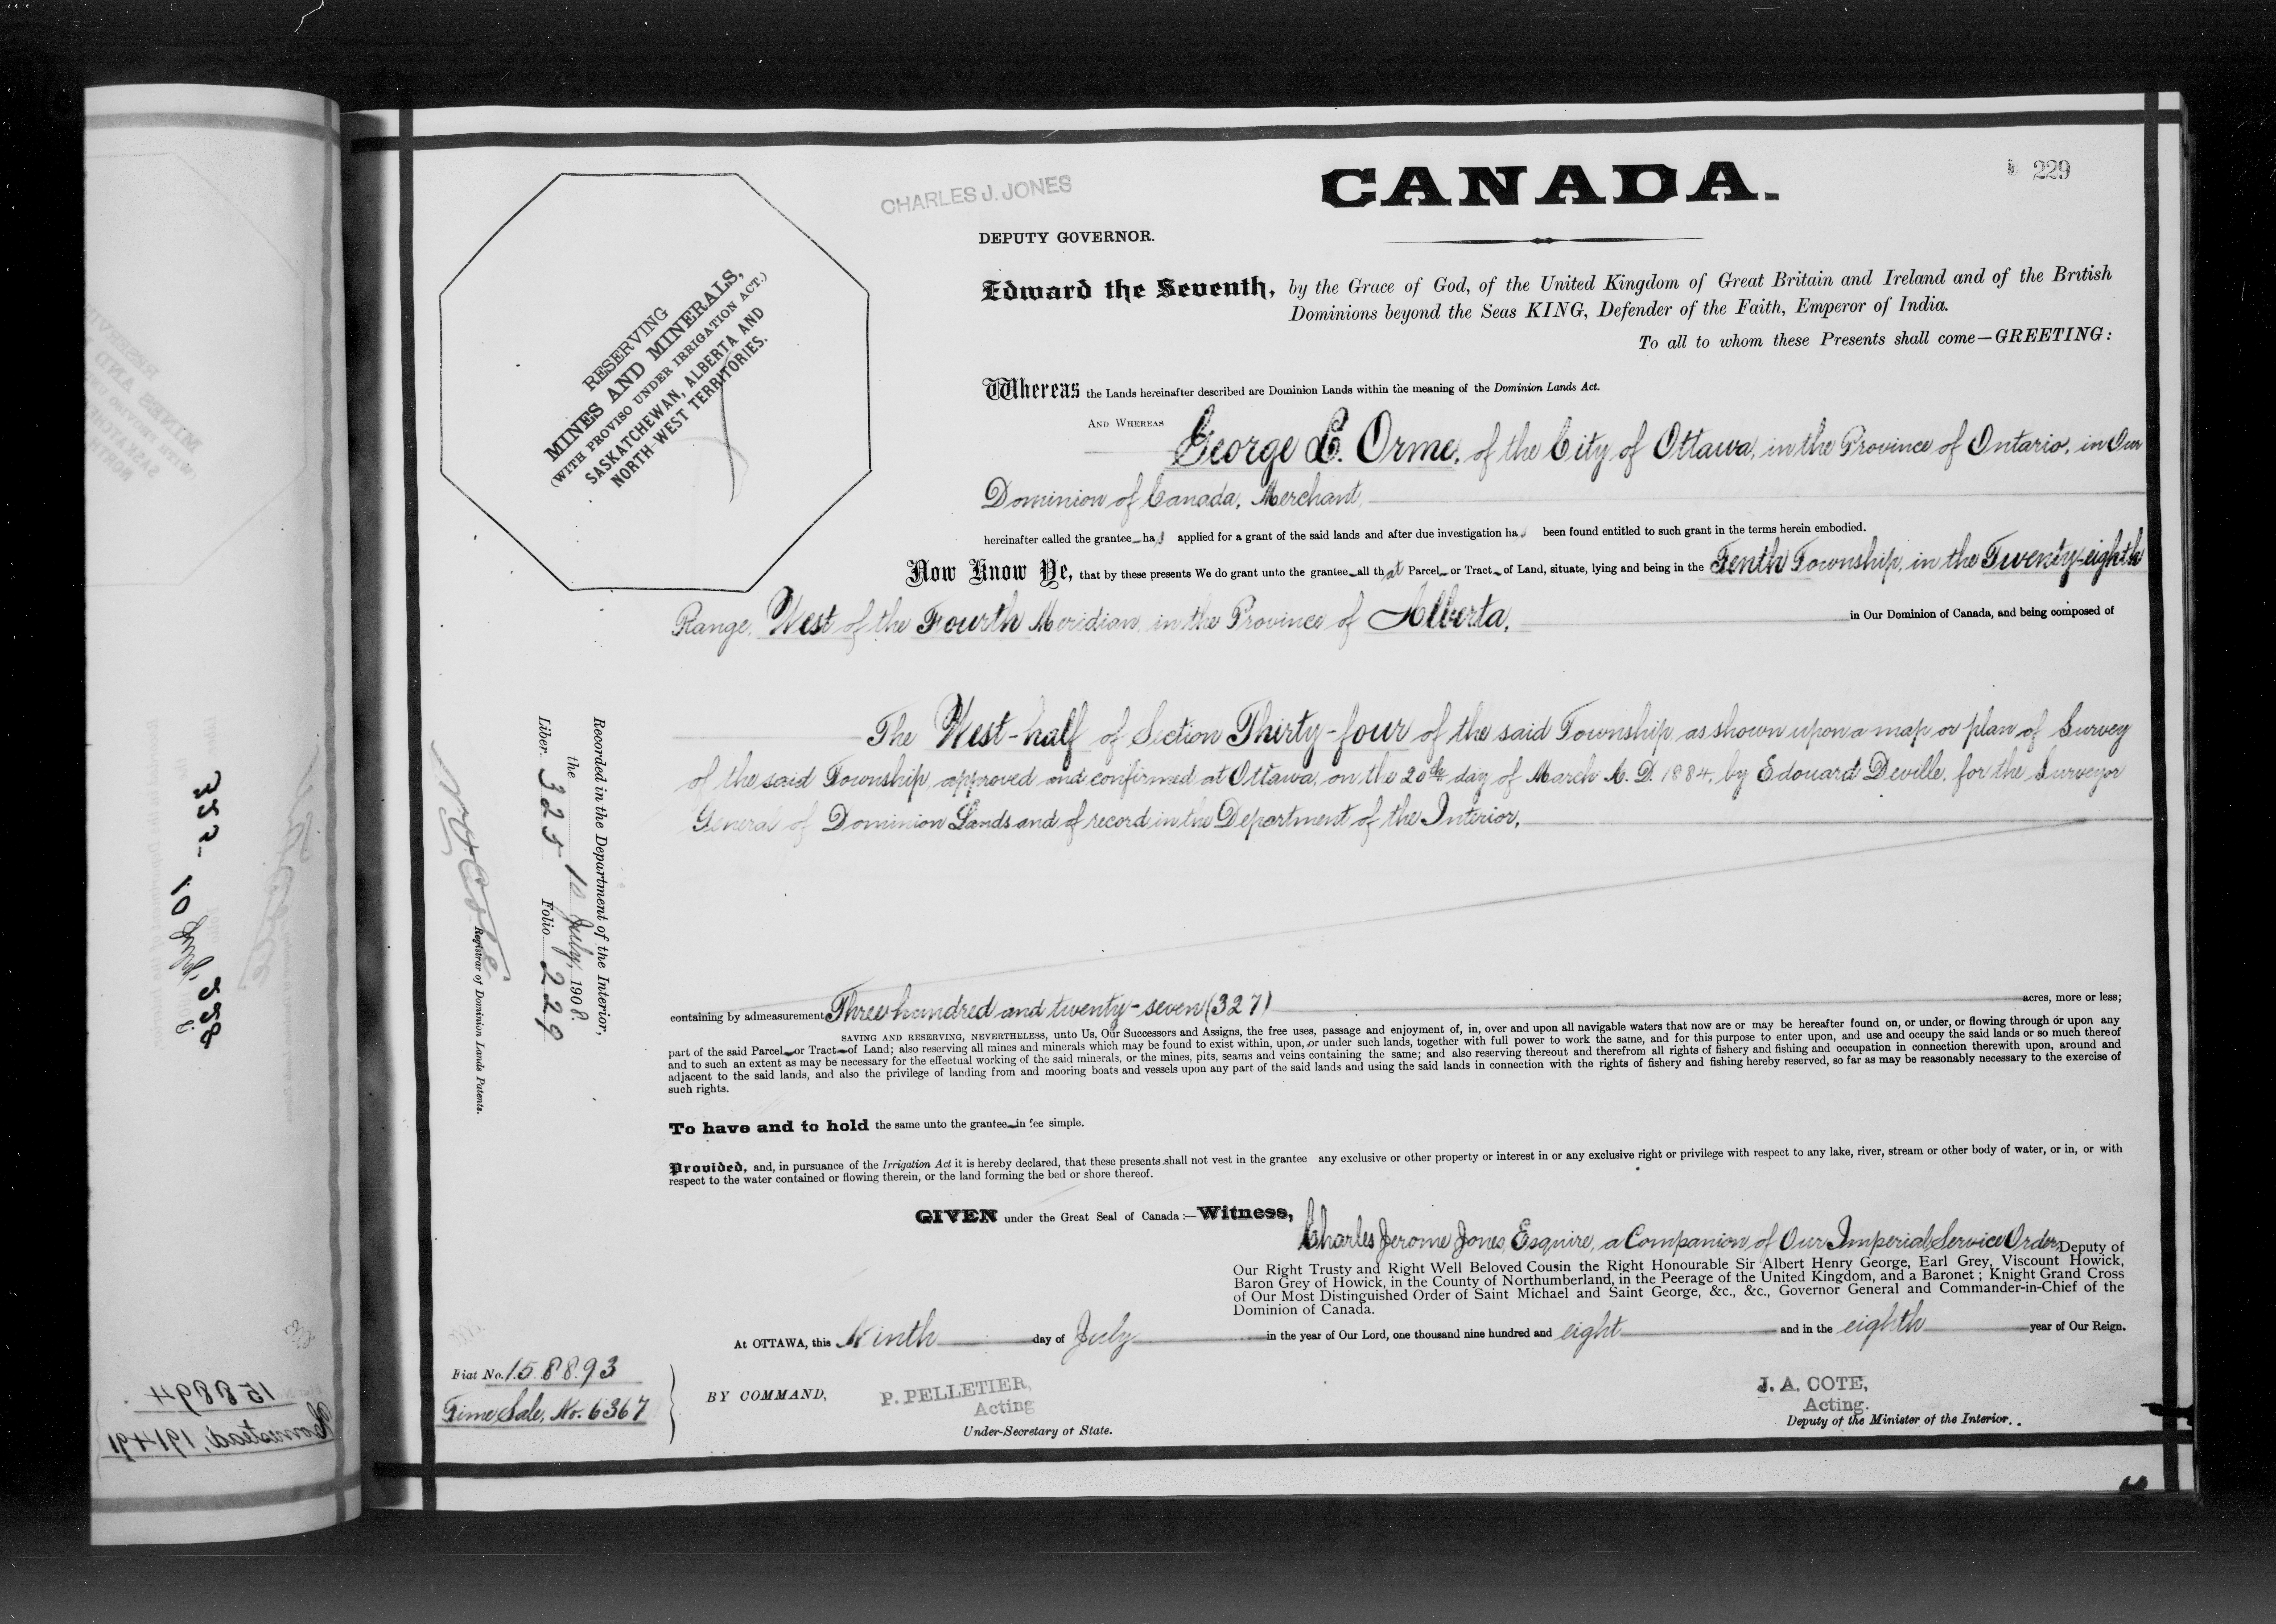 229
CHARLES J. JONES
CANADA.
DEPUTY GOVERNOR.
RESERVING
MINES AND MINERALS,
(WITH PROVISO UNDER IRRIGATION ACT.)
SASKATCHEWAN, ALBERTA AND
NORTH-WEST TERRITORIES.
Edward the Seventh, by the Grace of God, of the United Kingdom of Great Britain and Ireland and of the British
Dominions beyond the Seas KING, Defender of the Faith, Emperor of India.
To all to whom these Presents shall come—GREETING:
Whereas the Lands hereinafter described are Dominion Lands within the meaning of the Dominion Lands Act.
AND WHEREAS George E. Orme, of the City of Ottawa, in the Province of Ontario, in Our
Dominion of Canada, Merchant,
hereinafter called the grantee has applied for a grant of the said lands and after due investigation has been found entitled to such grant in the terms herein embodied.
Now Know Ye, that by these presents We do grant unto the grantee all that Parcel or Tract of Land, situate, lying and being in the Tenth Township, in the Twenty-eighth
Range, West of the Fourth Meridian, in the Province of Alberta, in Our Dominion of Canada, and being composed of
The West-half of Section Thirty-four of the said Township as shown upon a map or plan of Survey
of the said Township, approved and confirmed at Ottawa, on the 20th day of March A. D. 1884, by Edouard Deville, for the Surveyor
General of Dominion Lands and of record in the Department of the Interior,
containing by admeasurement Three hundred and twenty-seven (327) acres, more or less;
SAVING AND RESERVING, NEVERTHELESS, unto Us, Our Successors and Assigns, the free uses, passage and enjoyment of, in, over and upon all navigable waters that now are or may be hereafter found on, or under, or flowing through or upon any
part of the said Parcel or Tract of Land; also reserving all mines and minerals which may be found to exist within, upon, or under such lands, together with full power to work the same, and for this purpose to enter upon, and use and occupy the said lands or so much thereof
and to such an extent as may be necessary for the effectual working of the said minerals, or the mines, pits, seams and veins containing the same; and also reserving thereout and therefrom all rights of fishery and fishing and occupation in connection therewith upon, around and
adjacent to the said lands, and also the privilege of landing from and mooring boats and vessels upon any part of the said lands and using the said lands in connection with the rights of fishery and fishing hereby reserved, so far as may be reasonably necessary to the exercise of
such rights.
To have and to hold the same unto the grantee in fee simple.
Provided, and, in pursuance of the Irrigation Act it is hereby declared, that these presents shall not vest in the grantee any exclusive or other property or interest in or any exclusive right or privilege with respect to any lake, river, stream or other body of water, or in, or with
respect to the water contained or flowing therein, or the land forming the bed or shore thereof.
GIVEN under the Great Seal of Canada:—Witness, Charles Jerome Jones, Esquire, a Companion of Our Imperial Service Order, Deputy of
Our Right Trusty and Right Well Beloved Cousin the Right Honourable Sir Albert Henry George, Earl Grey, Viscount Howick,
Baron Grey of Howick, in the County of Northumberland, in the Peerage of the United Kingdom, and a Baronet; Knight Grand Cross
of Our Most Distinguished Order of Saint Michael and Saint George, &c., &c., Governor General and Commander-in-Chief of the
Dominion of Canada.
At OTTAWA, this Ninth day of July in the year of Our Lord, one thousand nine hundred and eight and in the eighth year of Our Reign.
Fiat No. 158893
Time Sale, No. 6367
BY COMMAND,
P. PELLETIER,
Acting
Under-Secretary of State.
J. A. COTE,
Acting.
Deputy of the Minister of the Interior.
Recorded in the Department of the Interior,
the 10 July, 1908.
Liber 325 Folio 229
Registrar of Dominion Lands Patents.
325
10 July
228
158894
Homestead, 191491